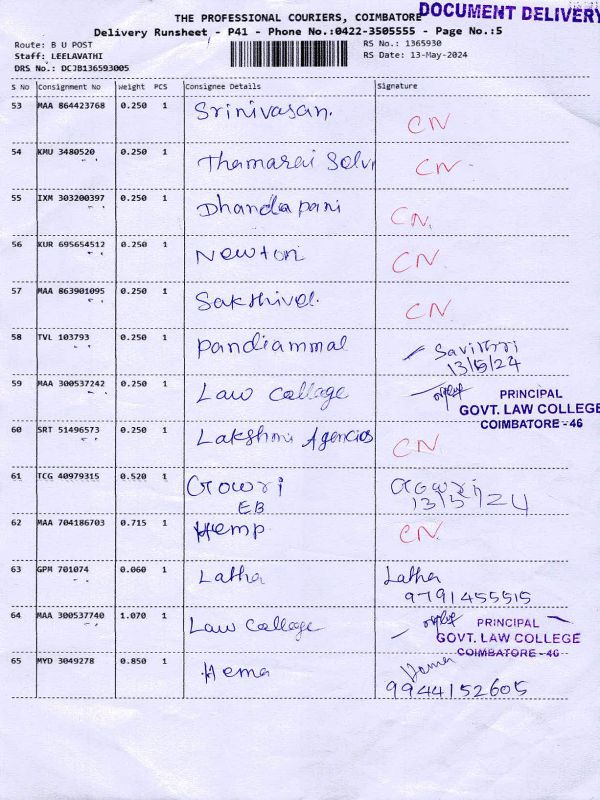 THE PROFESSIONAL COURIERS, COIMBATORE DOCUMENT DELIVERY
Delivery Runsheet - P41 - Phone No.:0422-3505555 - Page No.:5
Route: B U POST RS No.: 1365930
Staff: LEELAVATHI RS Date: 13-May-2024
DRS No.: DCJB136593005
S No Consignment No Weight PCS Consignee Details Signature
53 MAA 864423768 0.250 1 Srinivasan. CN
54 KMU 3480520 0.250 1 Thamarai Selvi CN
55 IXM 303200397 0.250 1 Dhandapani CN.
56 KUR 695654512 0.250 1 Newton CN
57 MAA 863901095 0.250 1 Sakthivel. CN
58 TVL 103793 0.250 1 Pandiammal Savithri
13/5/24
59 MAA 300537242 0.250 1 Law Collage PRINCIPAL
GOVT. LAW COLLEGE
COIMBATORE - 46
60 SRT 51496573 0.250 1 Lakshmi Agencies CN
61 TCG 40979315 0.520 1 Gowri Gowri
EB 13/5/24
62 MAA 704186703 0.715 1 Hemp CN
63 GPM 701074 0.060 1 Latha Latha
9791455515
64 MAA 300537740 1.070 1 Law Collage PRINCIPAL
GOVT. LAW COLLEGE
COIMBATORE - 46
65 MYD 3049278 0.850 1 Hema Hema
9944152605